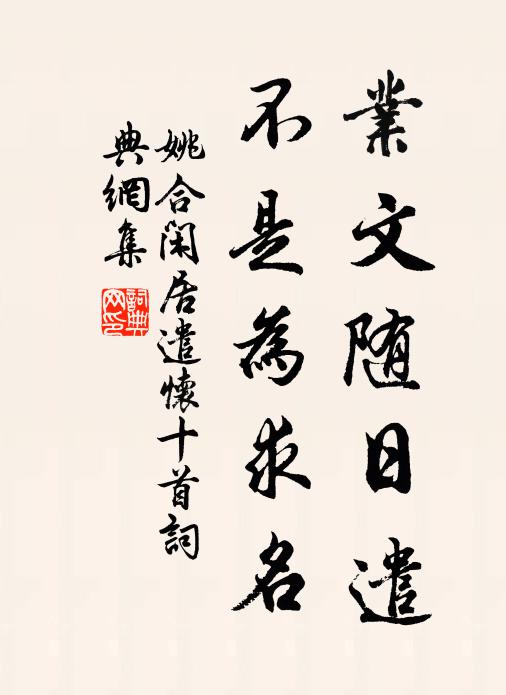 業文随日遣
不是為求名
姚合閑居遣懷十首詞
典網集
詞典
网印